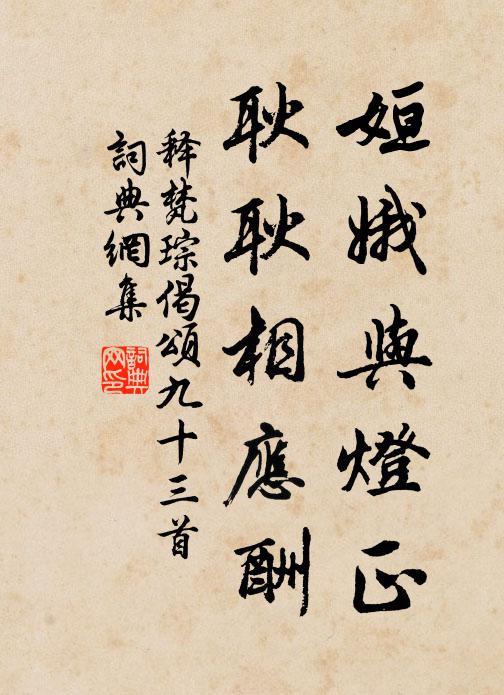 姮娥與燈正
耿耿相應酬
释梵琮偈頌九十三首
詞典網集
詞典網印